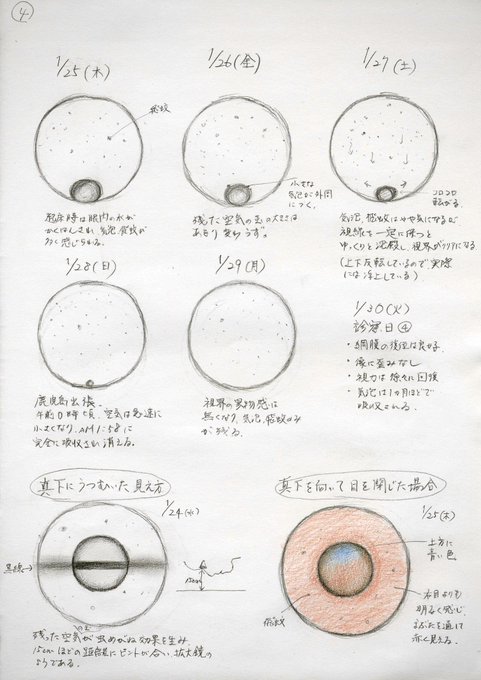 ④
1/25(木)
1/26(金)
1/27(土)
飛蚊
小さな
気泡が外周
につく。
コロコロ
転がる
起床時は眼内の水が
かくはんされ、気泡、飛蚊が
多く感じられる。
残った空気の玉の大きさは
あまり変わらず。
気泡、飛蚊は
視線を一定に保つと
ゆっくりと沈殿し、視界がクリアになる
(上下反転しているので実際
には浮上している)
1/28(日)
1/29(月)
1/30(火)
診察日④
・網膜の復位は良好。
・像に歪みなし
・視力は徐々に回復
・気泡は1ヶ月ほどで
吸収される。
鹿児島出張。
午前0時頃、空気は急速に
小さくなり、AM1:58に
完全に吸収され消える。
視界の異物感は
無くなり、気泡、飛蚊のみ
が残る。
真下にうつむいた見え方
1/24(水)
黒線→
15cm
残った空気の玉が虫めがね効果を生み
15cmほどの距離にピントが合い、拡大鏡の
ようである。
真下を向いて目を閉じた場合
1/25(木)
上方に
青い色
飛蚊
右目よりも
明るく感じ、
まぶたを通して
赤く見える。